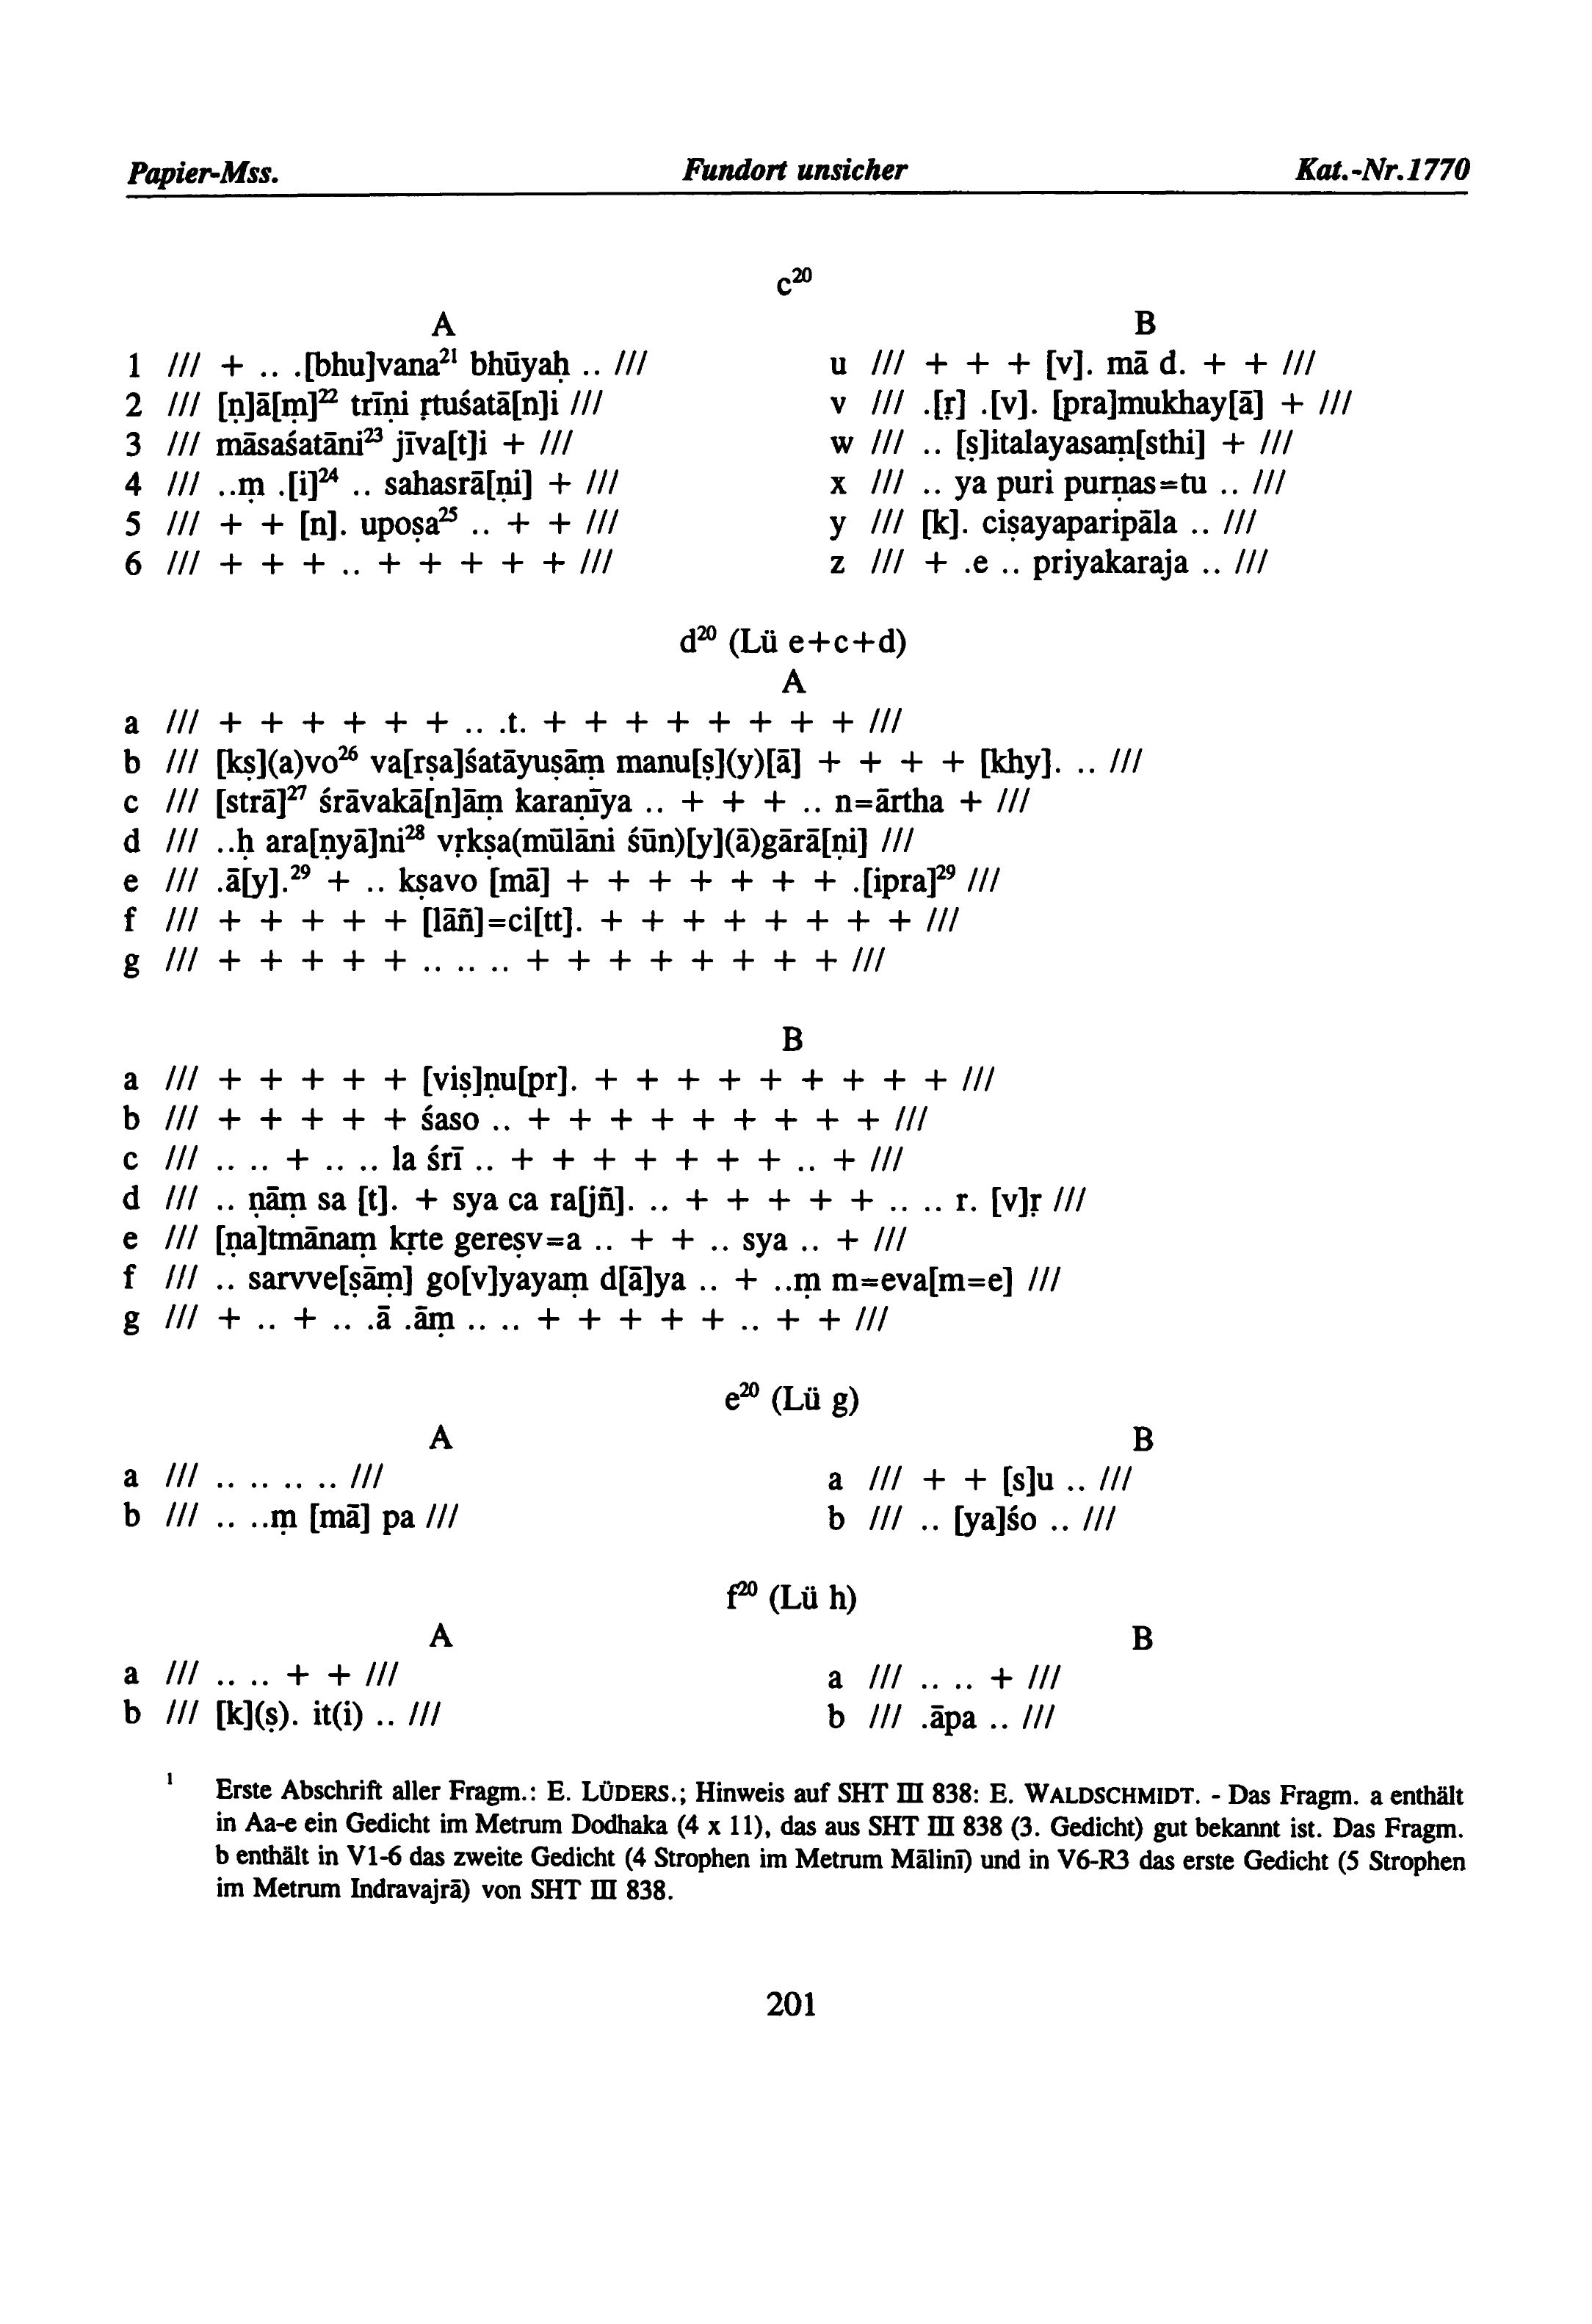 Papier-Mss. Fundort unsicher Kat.-Nr.1770
c²⁰
A
1 /// + .. .[bhu]vana²¹ bhūyaḥ .. ///
2 /// [ṇ]ā[ṃ]²² trīṇi ṛtuśatā[n]i ///
3 /// māsaśatāni²³ jīva[t]i + ///
4 /// ..ṃ .[i]²⁴ .. sahasrā[ṇi] + ///
5 /// + + [n]. upoṣa²⁵ .. + + ///
6 /// + + + .. + + + + + ///
B
u /// + + + [v]. mā d. + + ///
v /// .[ṛ] .[v]. [pra]mukhay[ā] + ///
w /// .. [ṣ]italayasaṃ[sthi] + ///
x /// .. ya puri purṇas=tu .. ///
y /// [k]. ciṣayaparipāla .. ///
z /// + .e .. priyakaraja .. ///
d²⁰ (Lü e+c+d)
A
a /// + + + + + + .. .t. + + + + + + + + ///
b /// [kṣ](a)vo²⁶ va[rṣa]śatāyuṣāṃ manu[ṣ](y)[ā] + + + + [khy]. .. ///
c /// [strā]²⁷ śrāvakā[n]āṃ karaṇīya .. + + + .. n=ārtha + ///
d /// ..ḥ ara[ṇyā]ni²⁸ vṛkṣa(mūlāni śūn)[y](ā)gārā[ṇi] ///
e /// .ā[y].²⁹ + .. kṣavo [mā] + + + + + + + .[ipra]²⁹ ///
f /// + + + + + [lāñ]=ci[tt]. + + + + + + + + ///
g /// + + + + + .. .. .. + + + + + + + + ///
B
a /// + + + + + [viṣ]ṇu[pr]. + + + + + + + + + ///
b /// + + + + + śaso .. + + + + + + + + + ///
c /// .. .. + .. .. la śrī .. + + + + + + + .. + ///
d /// .. ṇāṃ sa [t]. + sya ca ra[jñ]. .. + + + + + .. .. r. [v]ṛ ///
e /// [ṇa]tmānaṃ kṛte gereṣv=a .. + + .. sya .. + ///
f /// .. sarvve[ṣāṃ] go[v]yayaṃ d[ā]ya .. + ..ṃ m=eva[m=e] ///
g /// + .. + .. .ā .āṃ .. .. + + + + + .. + + ///
e²⁰ (Lü g)
A
a /// .. .. .. .. .. ///
b /// .. ..ṃ [mā] pa ///
B
a /// + + [s]u .. ///
b /// .. [ya]śo .. ///
f²⁰ (Lü h)
A
a /// .. .. + + ///
b /// [k](ṣ). it(i) .. ///
B
a /// .. .. + ///
b /// .āpa .. ///
¹ Erste Abschrift aller Fragm.: E. LÜDERS.; Hinweis auf SHT III 838: E. WALDSCHMIDT. - Das Fragm. a enthält
in Aa-e ein Gedicht im Metrum Dodhaka (4 x 11), das aus SHT III 838 (3. Gedicht) gut bekannt ist. Das Fragm.
b enthält in V1-6 das zweite Gedicht (4 Strophen im Metrum Mālinī) und in V6-R3 das erste Gedicht (5 Strophen
im Metrum Indravajrā) von SHT III 838.
201